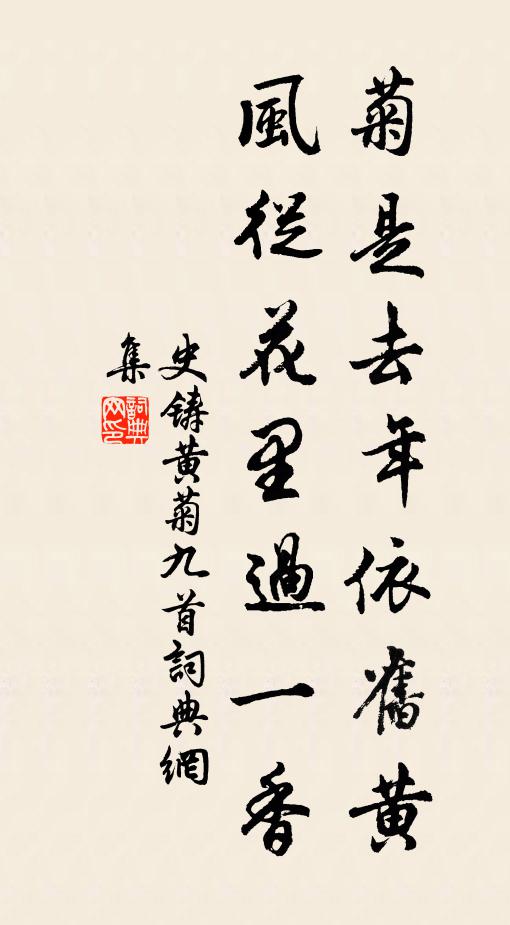 菊是去年依舊黄
風從花里過一香
史鑄黄菊九首詞典網
集
詞典网印